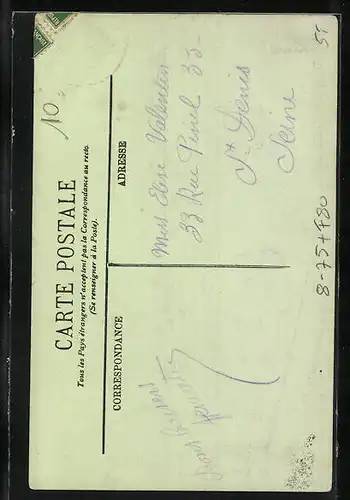 10
CARTE POSTALE
Tous les Pays étrangers n'acceptent pas la Correspondance au recto
(Se renseigner à la Poste).
CORRESPONDANCE
ADRESSE
Miss Elise Valentin
33 Rue Pinel 33
St Denis
Seine
8-75+P80